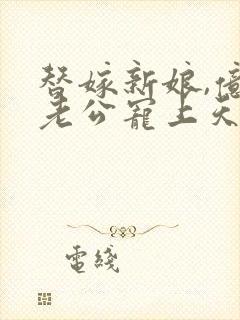 替嫁新娘,億
老公寵上天
電綫